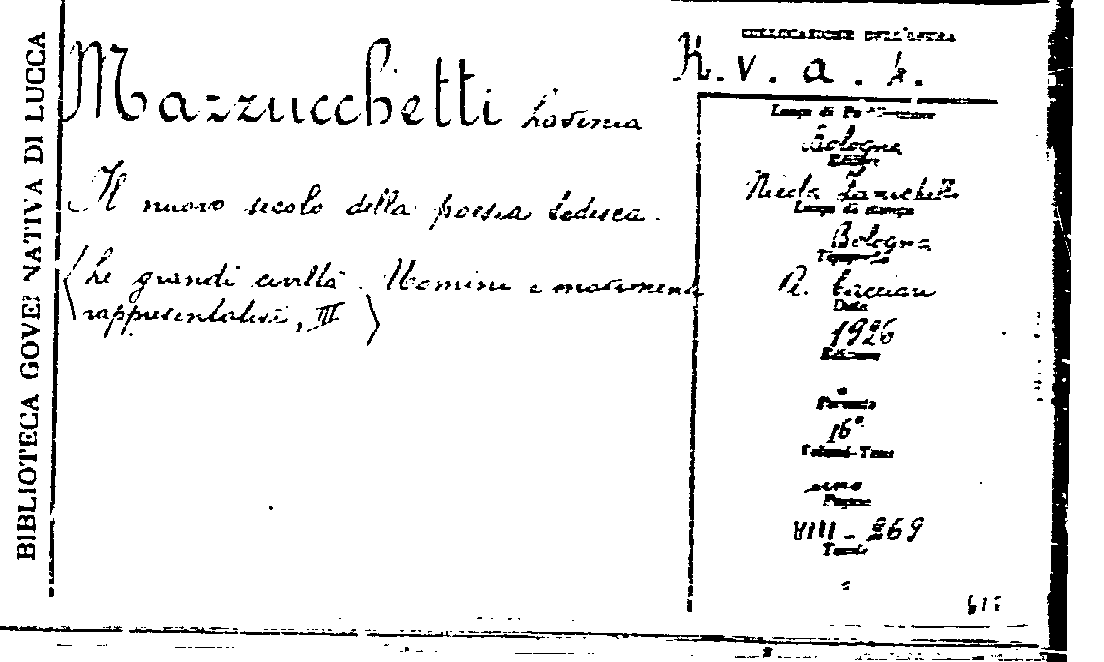 BIBLIOTECA GOVERNATIVA DI LUCCA
Mazzucchetti Lavinia
Il nuovo secolo della poesia tedesca.
(Le grandi civiltà. Uomini e movimenti
rappresentativi, III)
COLLOCAZIONE DELL'OPERA
K. v. a. k.
Luogo di Pubblicazione
Bologna
Editore
Nicola Zanichelli
Luogo di stampa
Bologna
Tipografia
Data
1926
Edizione
Formato
16°
Volumi-Tomi
uno
Pagine
VIII - 269
Tavole